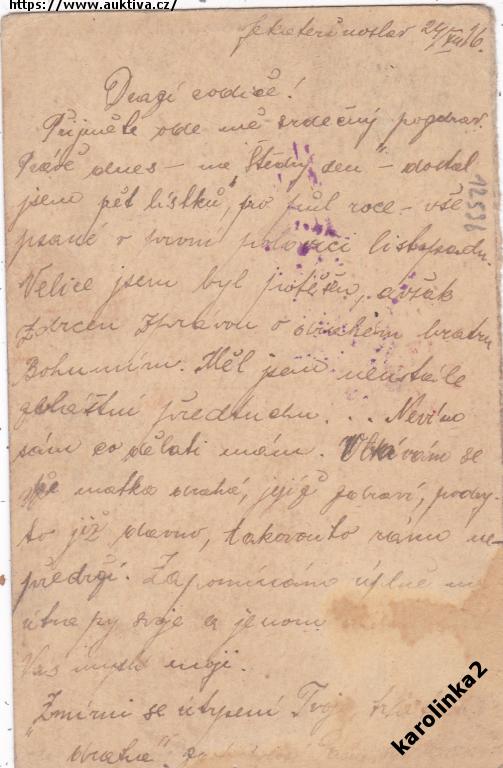 https://www.auktiva.cz/
Jekaterinoslav 24/XII 16.
Drazí rodiče!
Přijměte ode mě srdečný pozdrav.
Právě dnes – na "Štědrý den" – dostal
jsem pět lístků, po půl roce – vše
psané v první polovici listopadu.
Velice jsem byl potěšen, avšak
zdrcen zprávou o drahém bratru
Bohumíru. Měl jsem neustále
zvláštní předtuchu ... Nevím
sám co dělati mám. Obávám se
že matka drahá, jejíž zdraví, podry-
to již dávno, takovouto ránu ne-
předrží. Zapomínám úplně na
útrapy svoje a jenom
Vás mysl moji.
"Zmírni se utrpení Tvoje
drahá"
12536
karolinka2